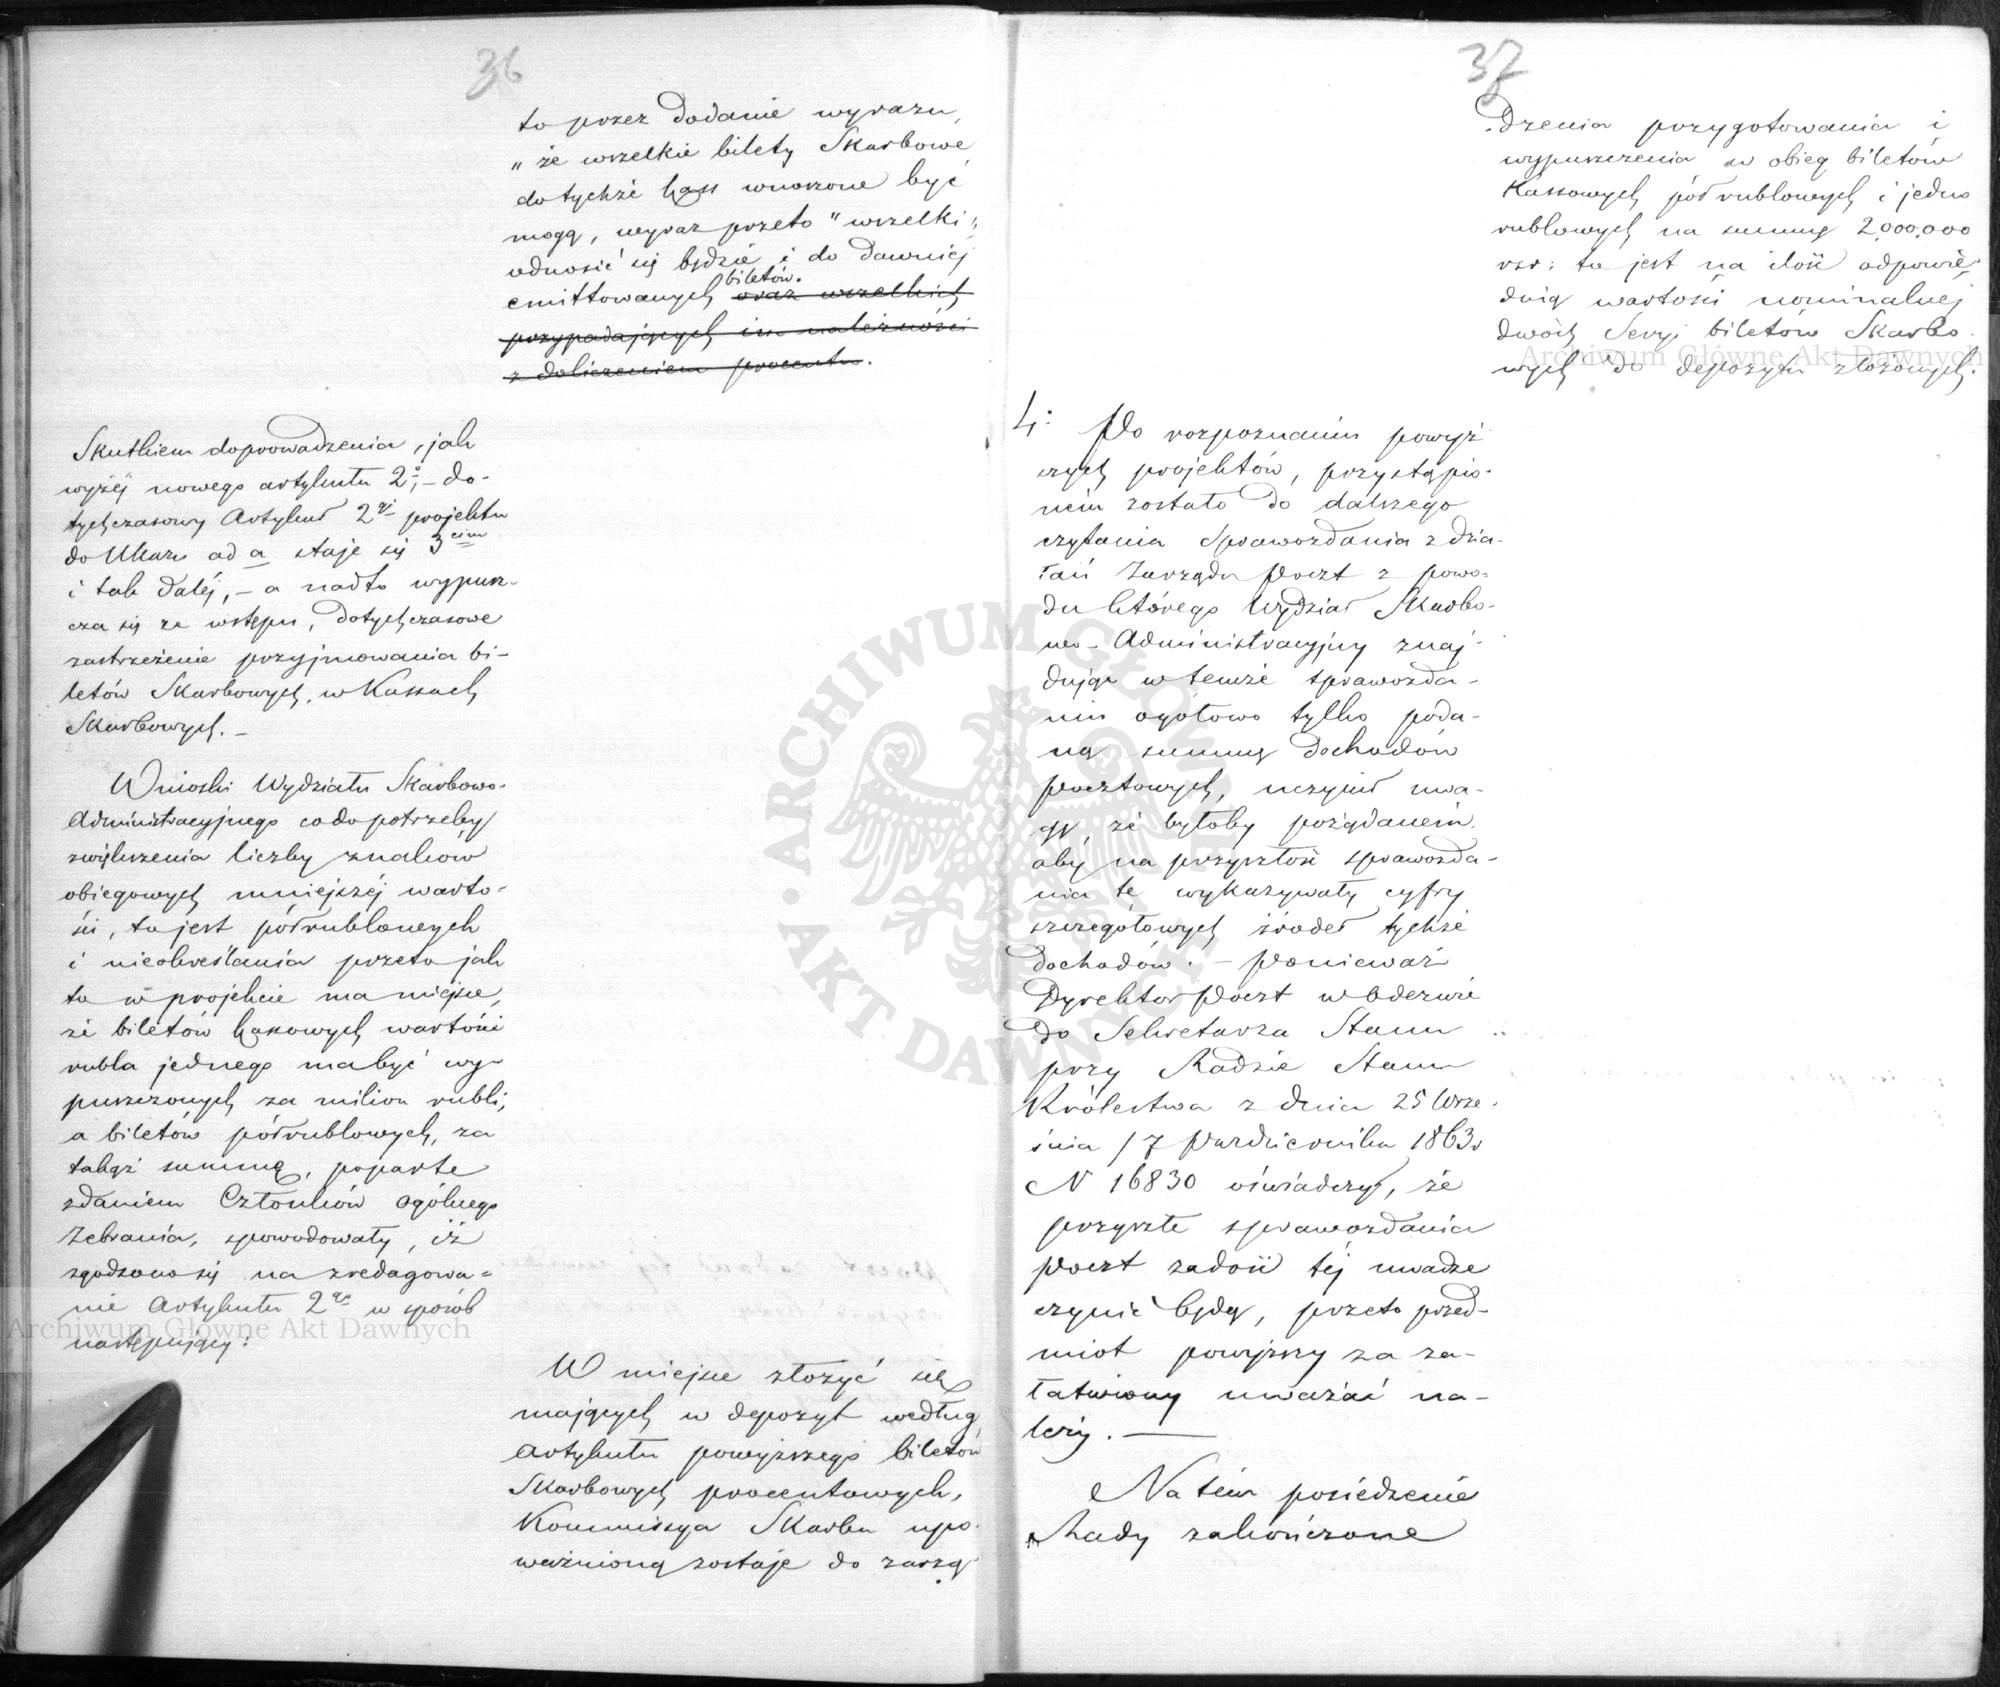 36
to przez dodanie wyrazu,
"że wszelkie bilety Skarbowe
do tychże kass wnoszone być
mogą, wyraz przeto "wszelki",
odnosić się będzie i do dawniéj
emittowanych biletów. oraz wszelkich
przypadających im należności
z doliczeniem procentu.
Skutkiem doprowadzenia, jak
wyżéj nowego artykułu 2o, – do-
tychczasowy Artykuł 2gi projektu
do Ukazu ad a staje się 3cim
i tak daléj, – a nadto wypusz-
cza się ze wstępu, dotychczasowe
zastrzeżenie przyjmowania bi-
letów Skarbowych w Kassach
Skarbowych. –
Wnioski Wydziału Skarbowo-
Administracyjnego co do potrzeby
zwiększenia liczby znaków
obiegowych mniejszéj warto-
ści, to jest półrublowych
i nieokreślania przeto jak
to w projekcie ma miejsce,
że biletów kassowych wartości
rubla jednego ma być wy-
puszczonych za milion rubli,
a biletów półrublowych, za
takąż summę, poparte
zdaniem Członków ogólnego
Zebrania, spowodowały, iż
zgodzono się na zredagowa-
nie Artykułu 2go w sposób
następujący:
W miejsce złożyć się
mających w depozyt według
Artykułu powyższego biletów
Skarbowych procentowych,
Kommissya Skarbu upo-
ważnioną zostaje do zarzą-
37
dzenia przygotowania i
wypuszczenia w obieg biletów
Kassowych półrublowych i jedno
rublowych na summę 2,000,000
rsr: to jest na ilość odpowie-
dnią wartości nominalnéj
dwóch Seryj biletów Skarbo-
wych do depozytu złożonych.
4. Po rozpoznaniu powyż-
szych projektów, przystąpio-
ném zostało do dalszego
czytania Sprawozdania z dzia-
łań Zarządu Poczt z powo-
du którego Wydział Skarbo-
wo-Administracyjny znaj-
dując w temże sprawozda-
niu ogółowo tylko poda-
ną summę dochodów
pocztowych, uczynił uwa-
gę, że byłoby pożądaném
aby na przyszłość sprawozda-
nia te wykazywały cyfry
szczegółowych źródeł tychże
dochodów. – Ponieważ
Dyrektor Poczt w odezwie
do Sekretarza Stanu
przy Radzie Stanu
Królestwa z dnia 25 Wrze-
śnia /7 Października 1863 r
N 16830 oświadczył, że
przyszłe sprawozdania
Poczt zadość téj uwadze
czynić będą, przeto przed-
miot powyższy za za-
łatwiony uważać na-
leży. —
Na tém posiedzenie
Rady zakończone
Archiwum Główne Akt Dawnych
Archiwum Główne Akt Dawnych
ARCHIWUM GŁÓWNE
AKT DAWNYCH